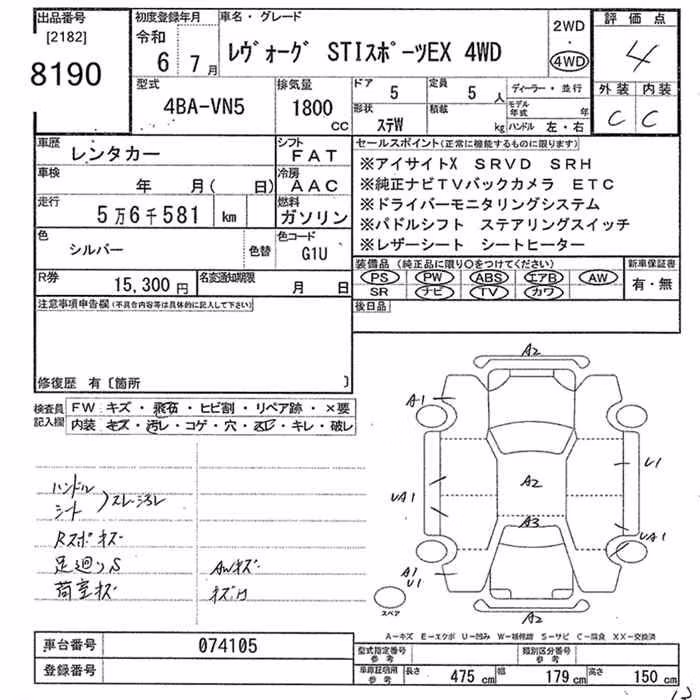 出品番号
[2182]
8190
初度登録年月
令和
6 7月
車名・グレード
ﾚｳﾞｫｰｸﾞ STIスポーツEX 4WD
2WD
4WD
評価点
4
外装 内装
C C
型式
4BA-VN5
排気量
1800
CC
ドア
5
定員
5 人
形状
ステW
積載
kg
ディーラー・並行
モデル年式 年
ハンドル 左・右
車歴
レンタカー
シフト
FAT
車検
年 月( 日)
冷房
AAC
走行
5万6千581 km
燃料
ガソリン
色
シルバー
色替
色コード
G1U
R券
15,300円
名変通知期限
月 日
セールスポイント(正常に機能するものに限ります)
※アイサイトX SRVD SRH
※純正ナビTVバックカメラ ETC
※ドライバーモニタリングシステム
※パドルシフト ステアリングスイッチ
※レザーシート シートヒーター
装備品(純正品に限り○をつけてください)
PS PW ABS エアB AW
SR ナビ TV カワ
新車保証書
有・無
後日品
注意事項申告欄(不具合内容等は具体的に記入して下さい)
修復歴 有〔箇所 〕
検査員記入欄
FW キズ・飛石・ヒビ割・リペア跡・×要
内装 キズ・汚レ・コゲ・穴・スレ・キレ・破レ
ハンドル
シート
スレ・汚レ
Rスポキズ
足廻りS
荷室キズ
AWキズ
A2
A1
U1
UA1
A2
A3
UA1
A1
U1
A2
スペア
A-キズ E-エクボ U-凹み W-補修跡 S-サビ C-腐食 XX-交換済
車台番号
074105
登録番号
型式指定番号
参考
類別区分番号
参考
車庫証明用
参考
長さ 475cm 幅 179cm 高さ 150cm